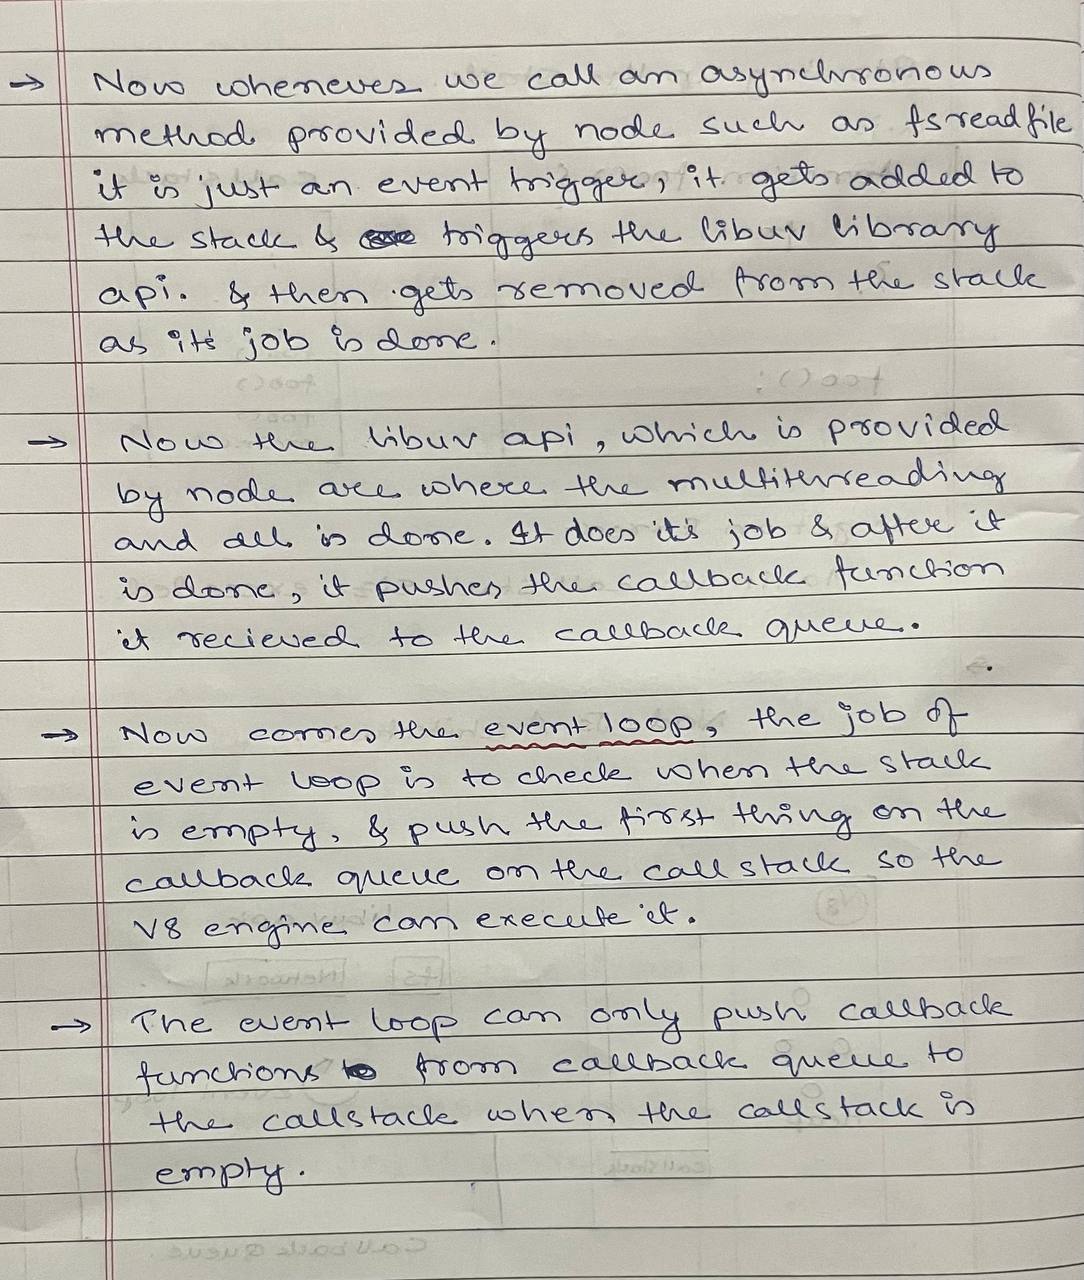 → Now whenever we call an asynchronous
method provided by node such as fsreadfile
it is just an event trigger, it gets added to
the stack & triggers the libuv library
api. & then gets removed from the stack
as it's job is done.
→ Now the libuv api, which is provided
by node are where the multithreading
and all is done. It does it's job & after it
is done, it pushes the callback function
it recieved to the callback queue.
→ Now comes the event loop, the job of
event loop is to check when the stack
is empty, & push the first thing on the
callback queue on the call stack so the
V8 engine can execute it.
→ The event loop can only push callback
functions from callback queue to
the callstack when the callstack is
empty.